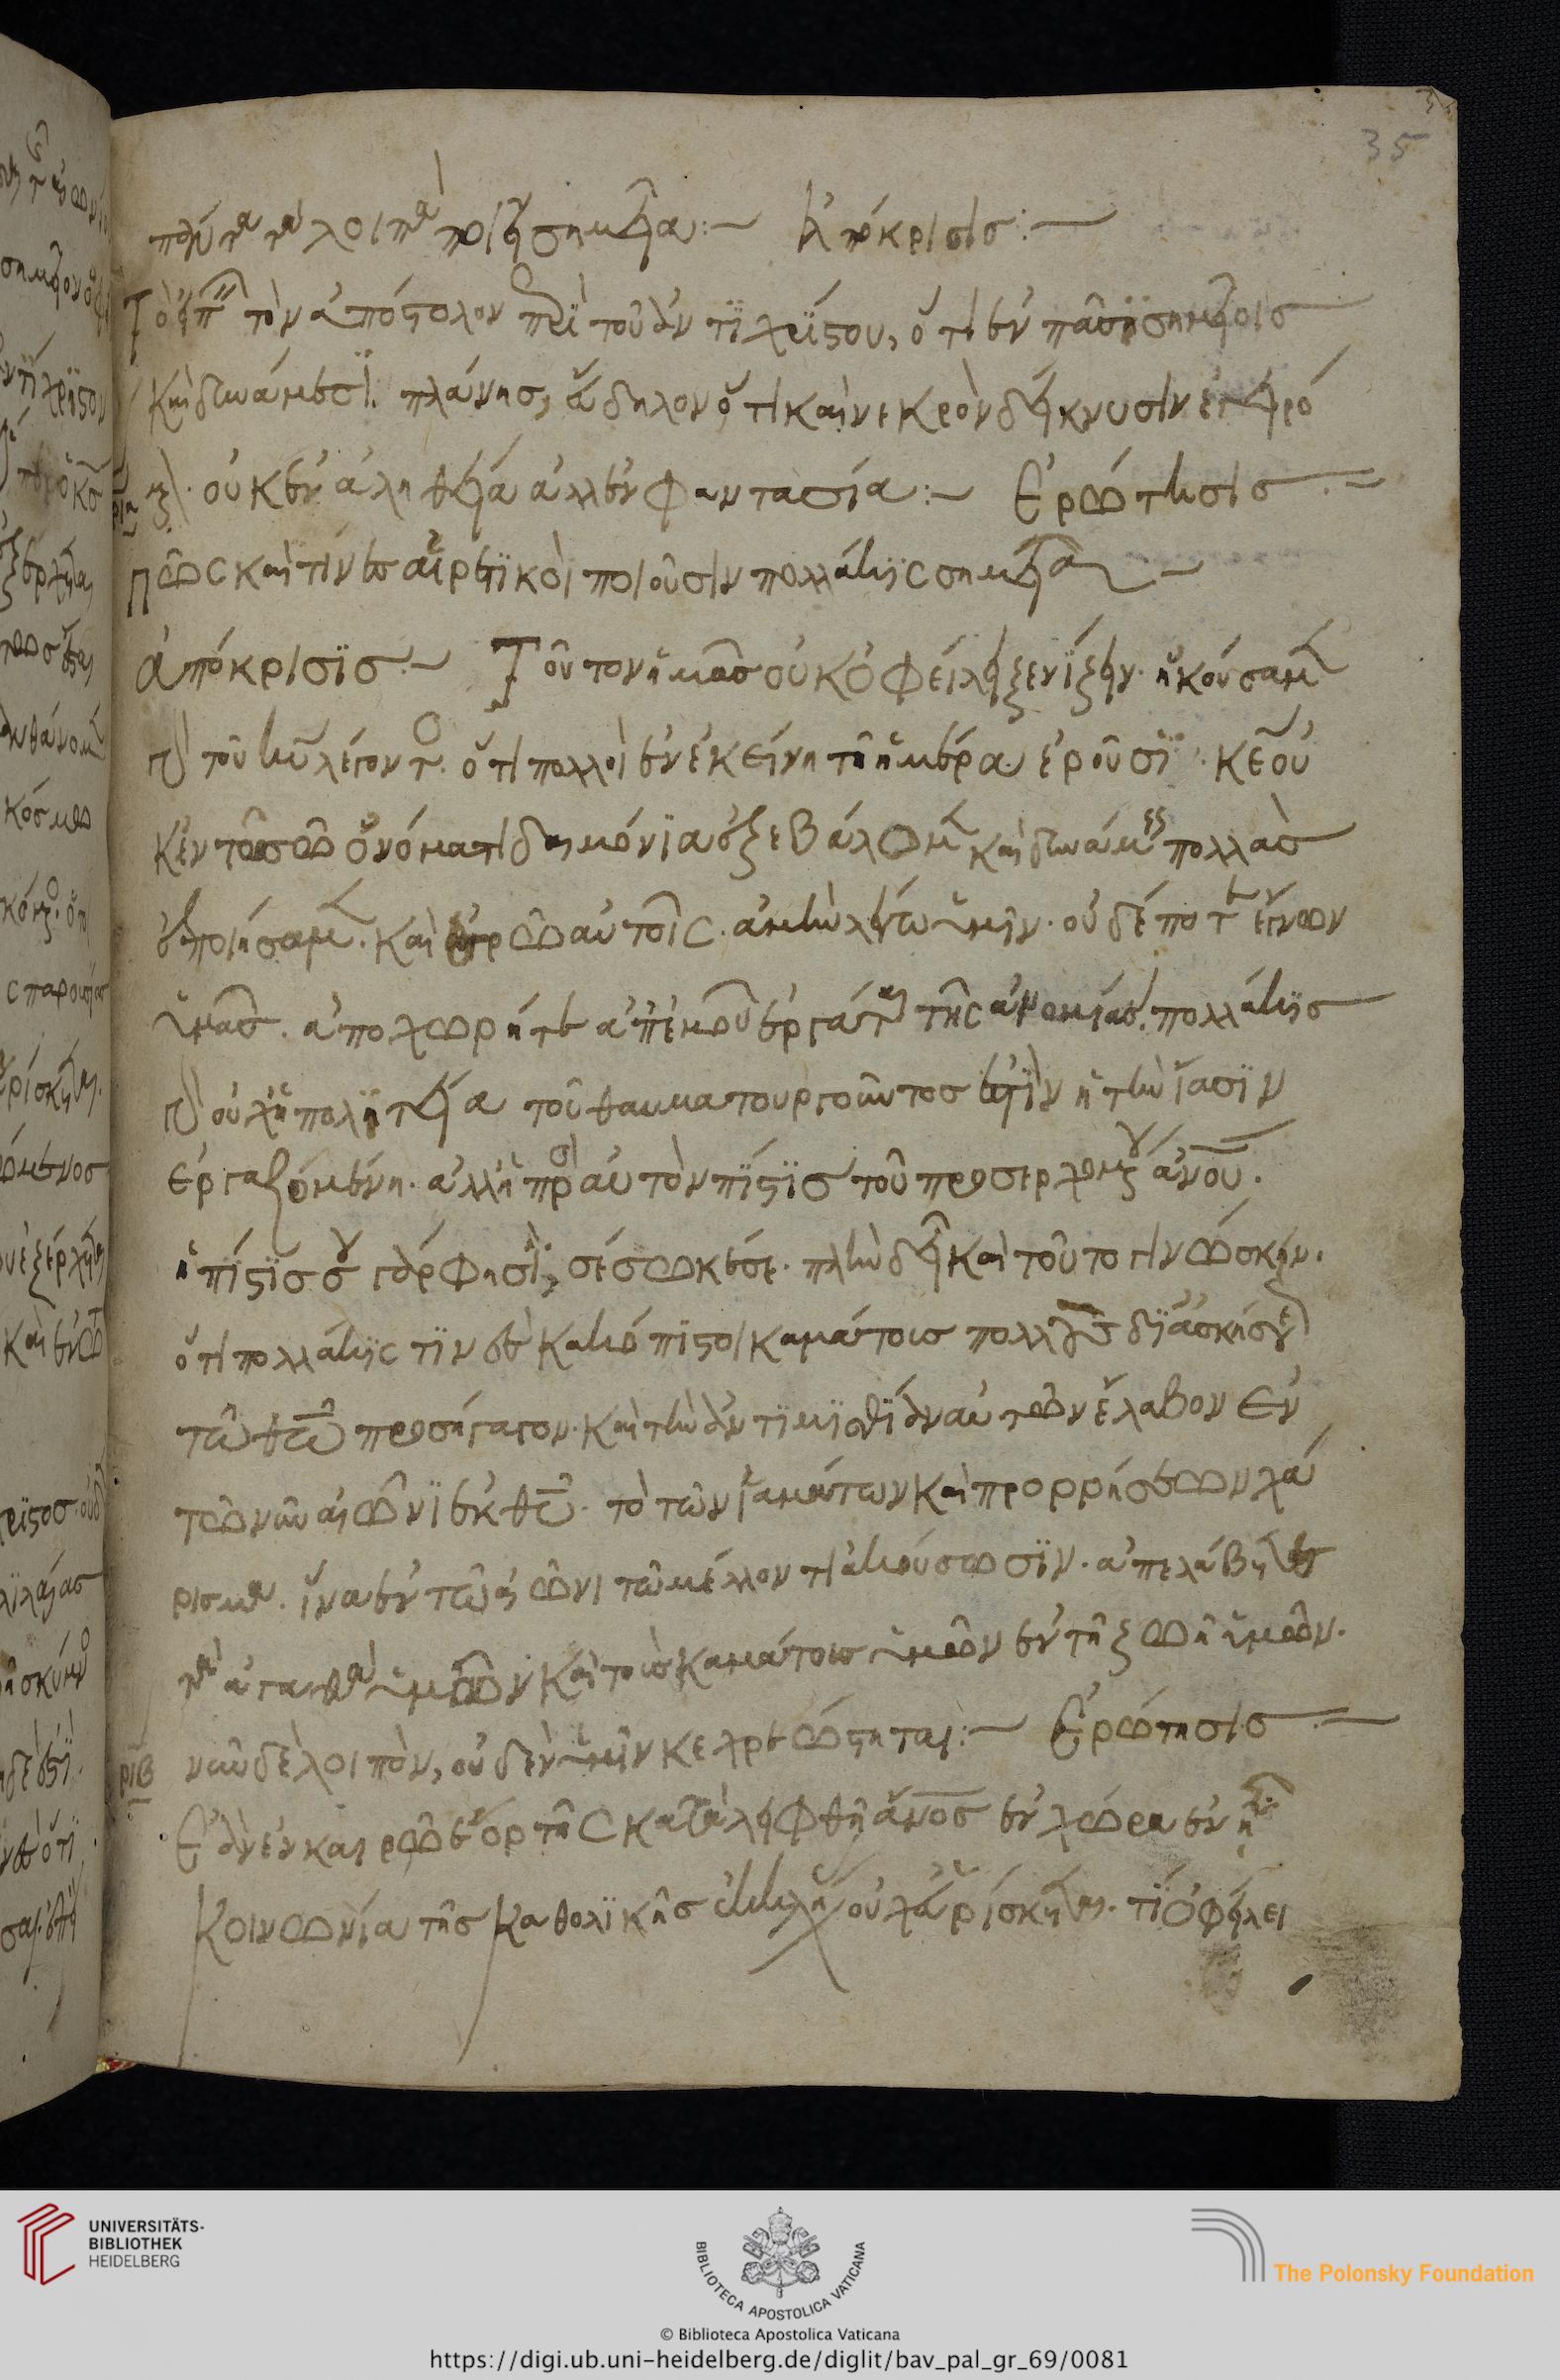 35
τὰ λοιπὰ ποιεῖ σημεῖα:~ Ἀπόκρισις:~
τὸν ἀπόστολον περὶ τοῦ ἀντιχρίστου, ὅτι ἐν πάσι σημείοις
καὶ δυνάμεσι πλάνης, ὅτι καὶ νεκρὸν δείκνυσιν
οὐκ ἐν ἀληθεία ἀλλ ἐν φαντασία:~ Ἐρώτησις
πῶς καὶ τινὲς αἱρετικοὶ ποιοῦσιν πολλάκις σημεῖα
ἀπόκρισις.~ Τοῦτον ἡμᾶς οὐκ ὀφείλει ξενίζειν. ἠκούσαμεν
τοῦ κυ λέγοντος. ὅτι πολλοὶ ἐν ἐκείνη τῆ ἡμέρα ἐροῦσι. κε οὐ
κἐν τῶ σῶ ὀνόματι δαιμόνια ἐξεβάλομεν καὶ δυνάμεις πολλὰς
ἐποιήσαμεν. καὶ ἐρῶ αὐτοῖς. ἀμὴν λέγω ὑμῖν. οὐδέποτε ἔγνων
ὑμᾶς. ἀποχωρήτε ἀπ ἐμοῦ ἐργάται τῆς ἀνομίας. πολλάκις
οὐχ ἡ πολητεία τοῦ θαυματουργοῦντος ἐστὶν ἡ τὴν ἴασιν
ἐργαζομένη. ἀλλ ἡ πρὸς αὐτὸν πίστις τοῦ προσερχομένου ανου.
ἡ πίστις σου γάρ φησι, σέσωκέ σε. πλὴν δεῖ καὶ τοῦτο γινώσκειν.
ὅτι πολλάκις τινὲς κακόπιστοι καμάτοις πολλοῖς δι ἀσκήσεως
τῶ θω προσήγαγον. καὶ τὴν ἀντιμισθίαν αὐτῶν ἔλαβον ἐν
τῶ νῦν αἰῶνι ἐκ θυ. τὸ τῶν ἰαμάτων καὶ προρρήσεων χά
ρισμα. ἵνα ἐν τῶ αἰῶνι τῶ μέλλοντι ἀκούσωσιν. ἀπελάβετε
τὰ ἀγαθὰ ὑμῶν καὶ τοὺς καμάτοις ὑμῶν ἐν τῆ ζωῆ ὑμῶν.
ριβ νῦν δὲ λοιπὸν, οὐδὲν ὑμῖν κεχρεώστηται:~ Ἐρώτησις
Ἐὰν ἐν καιρῶ ἑορτῆς καταλειφθῆ ανος ἐν χώρα ἐν ἧ
κοινωνία τῆς καθολικῆς ἐκκλησίας οὐχ εὑρίσκεται. τί ὀφείλει
UNIVERSITÄTS-
BIBLIOTHEK
HEIDELBERG
BIBLIOTECA APOSTOLICA VATICANA
The Polonsky Foundation
© Biblioteca Apostolica Vaticana
https://digi.ub.uni-heidelberg.de/diglit/bav_pal_gr_69/0081